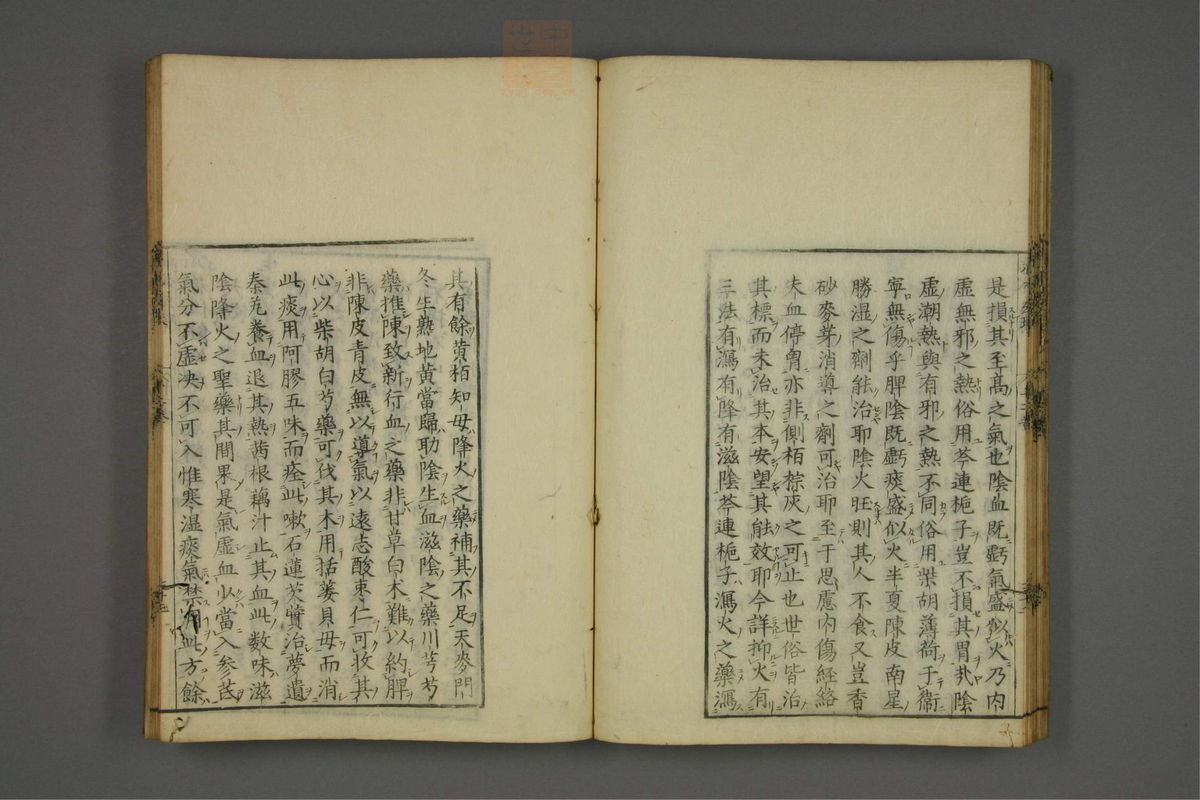 是損其至高之氣也陰血既虧氣盛似火乃内
虛無邪之熱俗用芩連梔子豈不損其胃㷊陰
虛潮熱與有邪之熱不同俗用柴胡薄荷于衞
寧無傷乎脾陰既虧痰盛似火半夏陳皮南星
勝湿之劑能治耶陰火旺則其人不食又豈香
砂麥芽消導之劑可治耶至于思慮内傷経絡
失血停胷亦非側栢棕灰之可止也世俗皆治
其標而未治其本安望其能效耶今詳抑火有
三法有瀉有降有滋陰芩連梔子瀉火之藥瀉
其有餘黄栢知母降火之藥補其不足天麥門
冬生熟地黄當歸助陰生血滋陰之藥川芎芍
藥推陳致新行血之藥非甘草白朮難以約脾
非陳皮青皮無以導氣以遠志酸枣仁可攻其
心以柴胡白芍藥可伐其木用括蔞貝母而消
此痰用阿膠五味而痊此嗽石蓮芡實治夢遺
秦艽養血退其熱茜根藕汁止其血此数味滋
陰降火之聖藥其間果是氣虛血少當入参茋
氣分不虛决不可入惟寒湿痰氣禁用此方餘